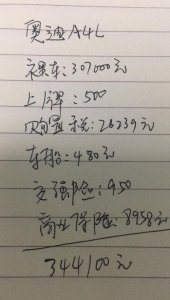 奥迪A4L
裸车:307000元
上牌:500
购置税:26239元
车船:480元
交强险:950
商业保险:8958元
344100元